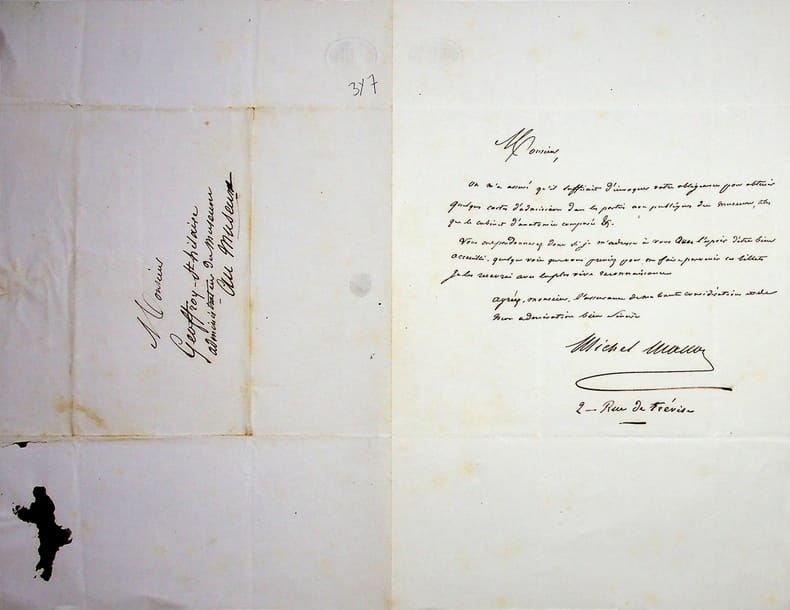 347
Monsieur
Geoffroy-St-hilaire
administrateur du museum
au Museum
Monsieur,
on m'a assuré qu'il suffirait d'invoquer votre obligeance pour obtenir
quelques cartes d'admission dans les parties non publiques du museum, telles
que le cabinet d'anatomie comparée &c.
Vous me pardonnerez donc si je m'adresse à vous avec l'espoir d'être bien
accueilli, quelque voie que vous preniez pour me faire parvenir ces billets
Je les recevrai avec la plus vive reconnaissance
agréez, monsieur, l'assurance de ma haute considération et de
mon admiration bien sincère
Michel
2 - Rue de Trévise